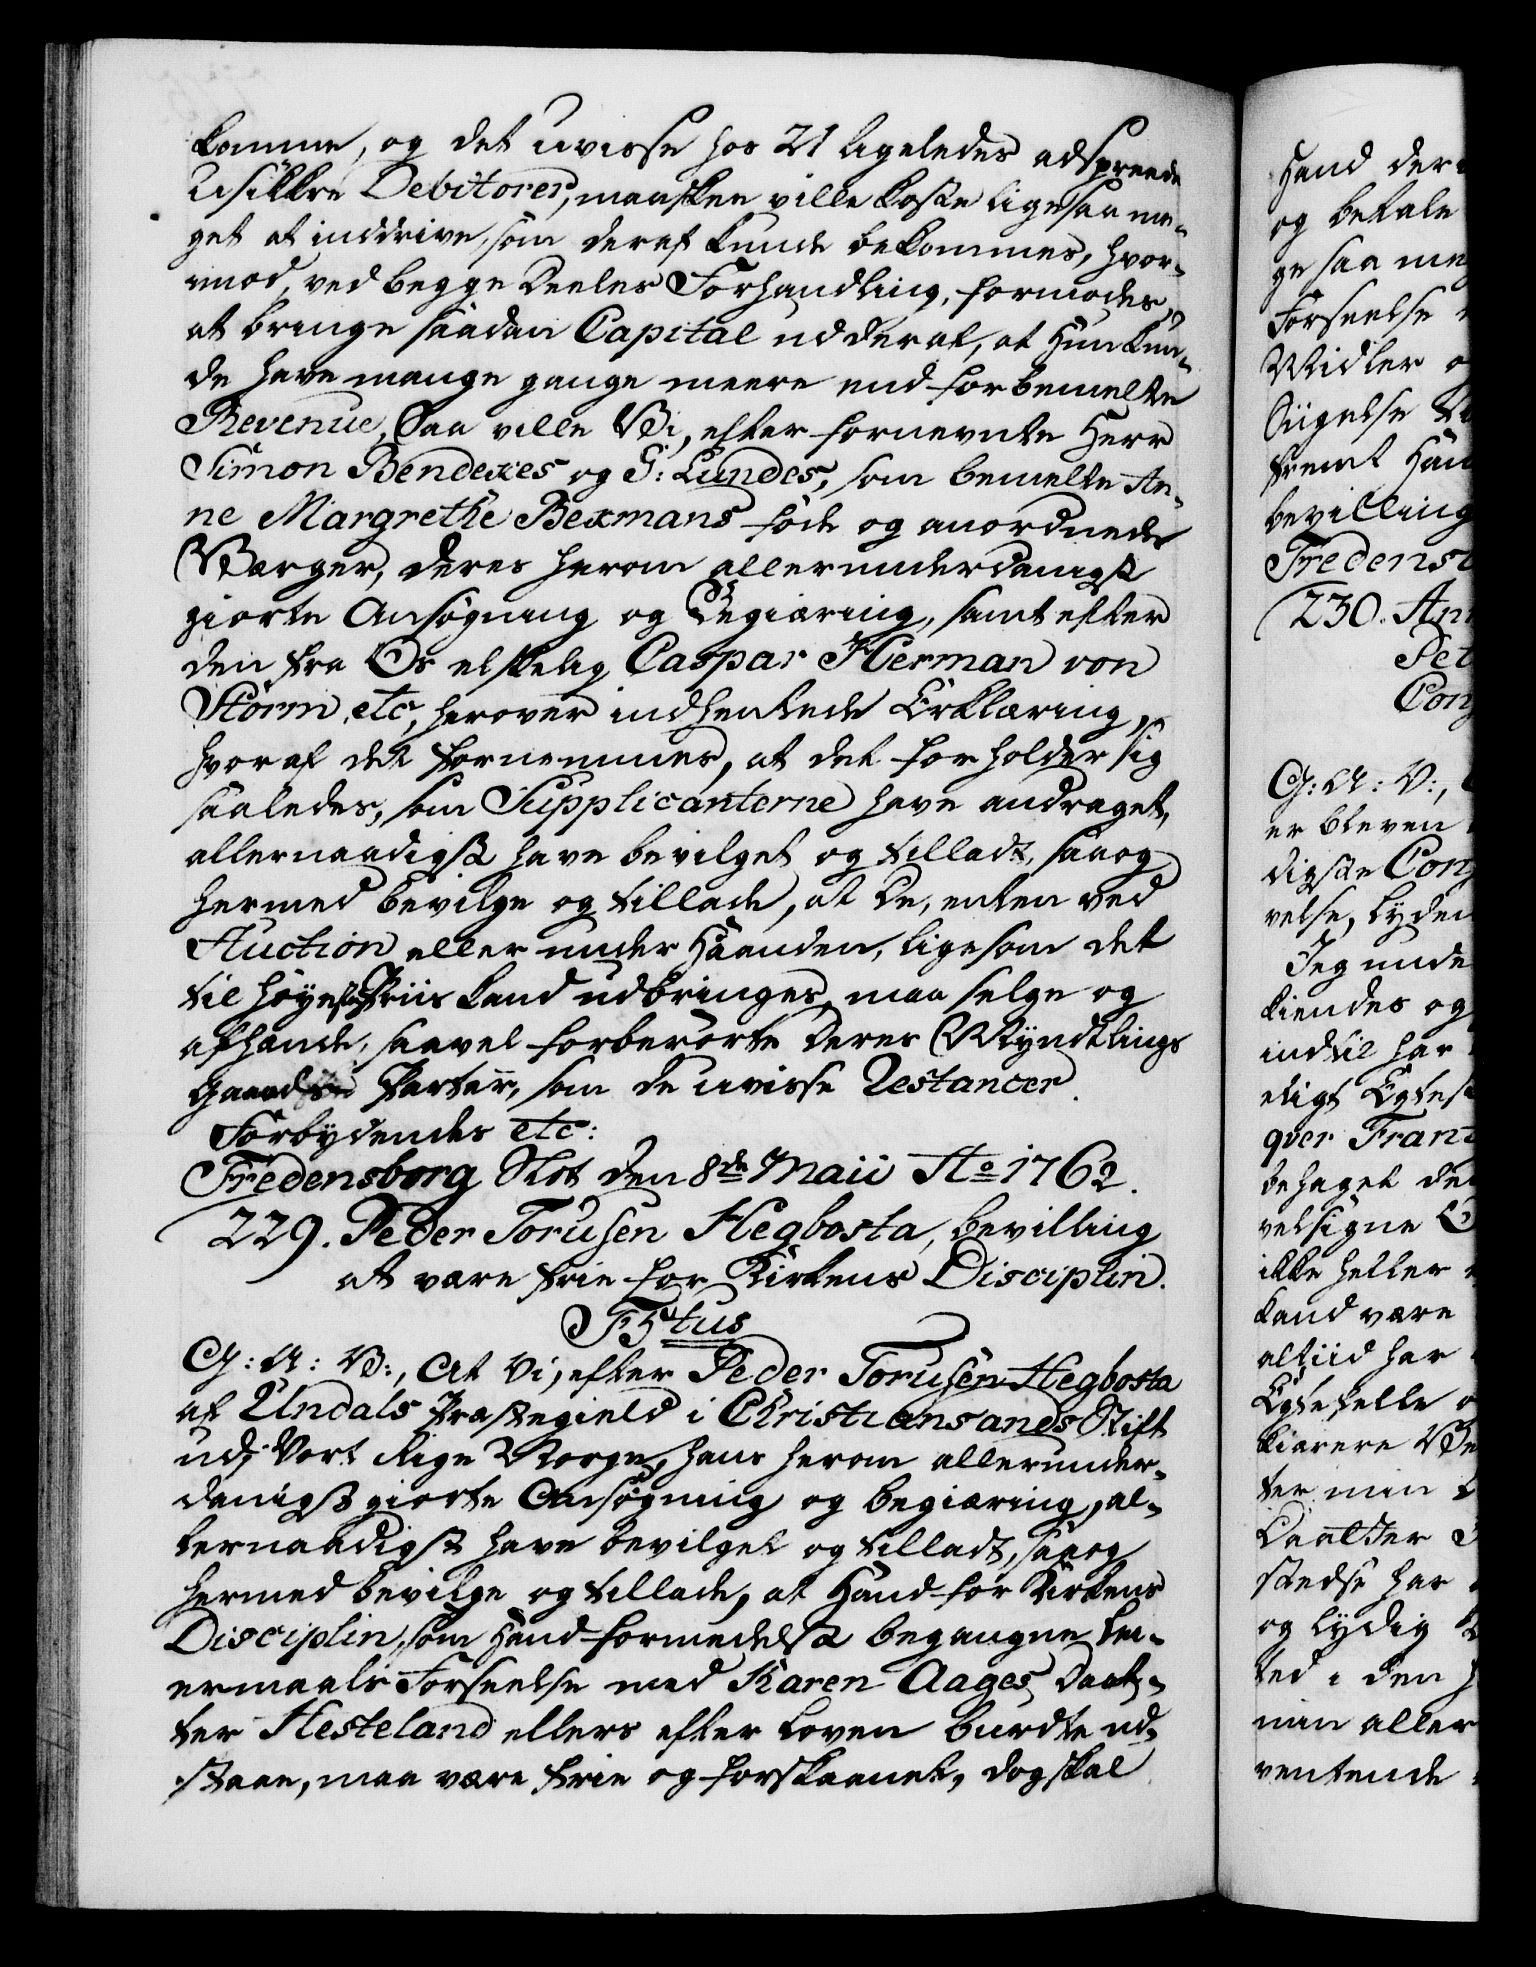 komme, og det uvisse hos 21 ligeledes adspreede
Usikkre Debitorer, maaskee ville koste ligesaa me-
get at inddrive, som deraf kunde bekommes, hvor-
imod, ved begge Deeles Forhandling, formodes,
at bringe saadan Capital ud deraf, at Hun kun-
de have mange gange meere end forbemelte
Revenue, Saa ville Vi, efter fornevnte Herr
Simon Bendexes og G: Lundes, som bemelte An-
ne Margrethe Bexmans fødde og anordnede
Værger, deres herom allerunderdanigst
giorte Ansøgning og Begiæring, samt efter
den fra Os elskelig Caspar Herman von
Størm etc, herover indhentede Erklæring,
hvoraf det fornemmes, at det forholder sig
saaledes, som Supplicanterne have andraget,
allernaadigst have bevilget og tilladt, saa og
hermed bevilge og tillade, at De, enten ved
Auction eller under Haanden, ligesom det
til høyeste Priis kand udbringes, maa selge og
afhænde, saavel forberørte deres Myndtlings
Gaard Parter, som de uvisse Restancer.
Forbydendes etc:
Fredensborg Slot den 8de Maii Ao 1762.
229. Peder Torusen Hegbosta, bevilling
at være frie for Kirkens Disciplin.
F5tus
G: A: V:, At Vi, efter Peder Torusen Hegbosta
af Undals Præstegield i Christiansands Stift
udj Vort Rige Norge, hans herom allerunder-
danigst giorte Ansøgning og begiæring, al-
lernaadigst have bevilget og tilladt, saa og
hermed bevilge og tillade, at Hand for Kirkens
Disciplin, som Hand formedelst begangne Lei-
ermaals Forseelse med Karen Aages Daat-
ter Hesteland ellers efter Loven burdte ud-
staae, maa være frie og forskaanet, dog skal
Hand der
og betale
ge saa me
Forseelse
Midler
bevilling
Fredens
230. An
Pet
Con
G: A: V:,
er bleven
digste Con
velse, lyden
Jeg unde
kiendes og
indtil har
gver Fran
behaget de
velsigne
ikke heller
kand være
altiid har
Egtefelle
kiærere
ter min
Daatter
stedse har
og lydig
ted i den
min aller
ventende